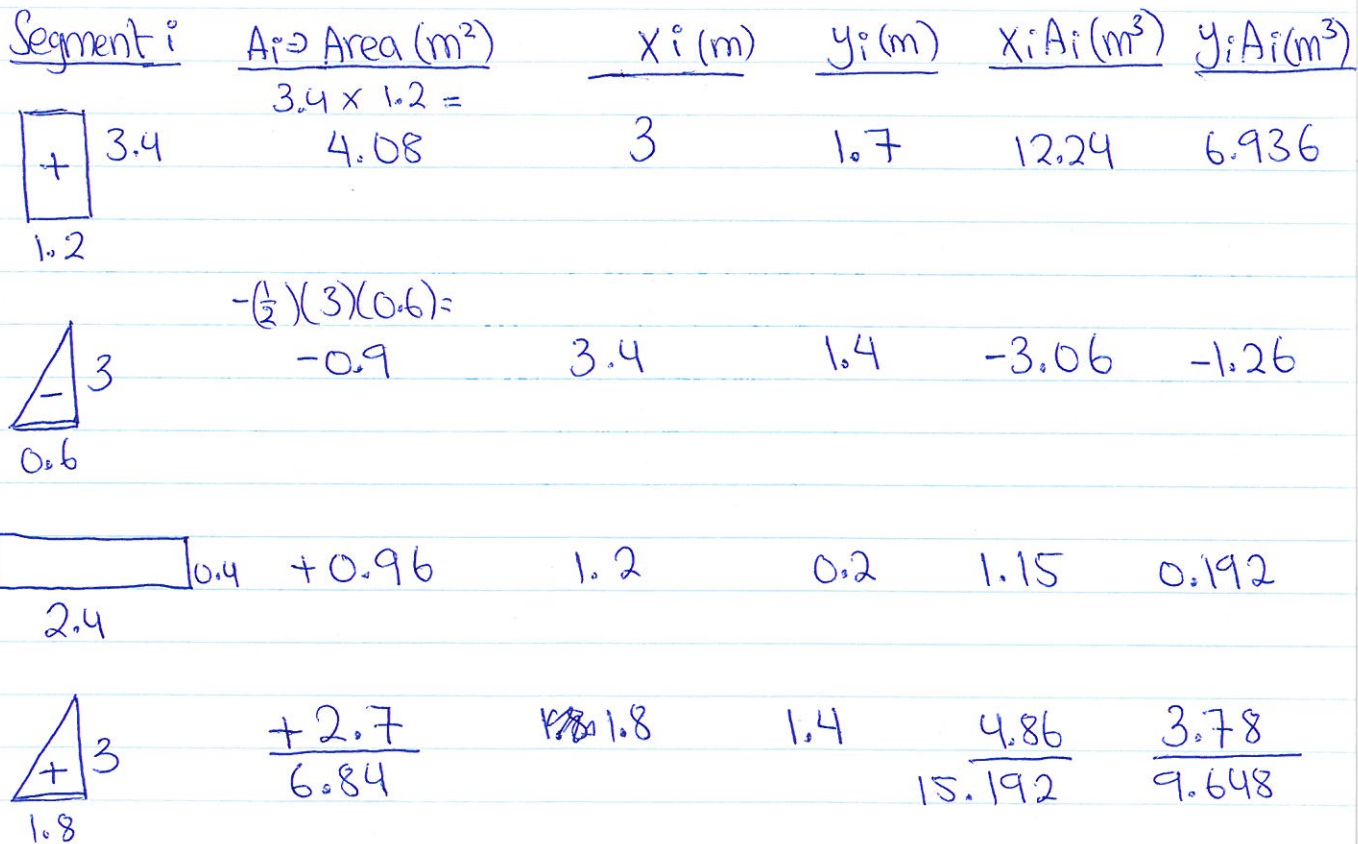 Segment i Ai⇒ Area (m²) Xi (m) yi (m) XiAi (m³) yiAi (m³)
3.4 x 1.2 =
+ 3.4 4.08 3 1.7 12.24 6.936
1.2
-(½)(3)(0.6)=
- 3 -0.9 3.4 1.4 -3.06 -1.26
0.6
0.4 +0.96 1.2 0.2 1.15 0.192
2.4
+ 3 +2.7 1.8 1.4 4.86 3.78
6.84 15.192 9.648
1.8